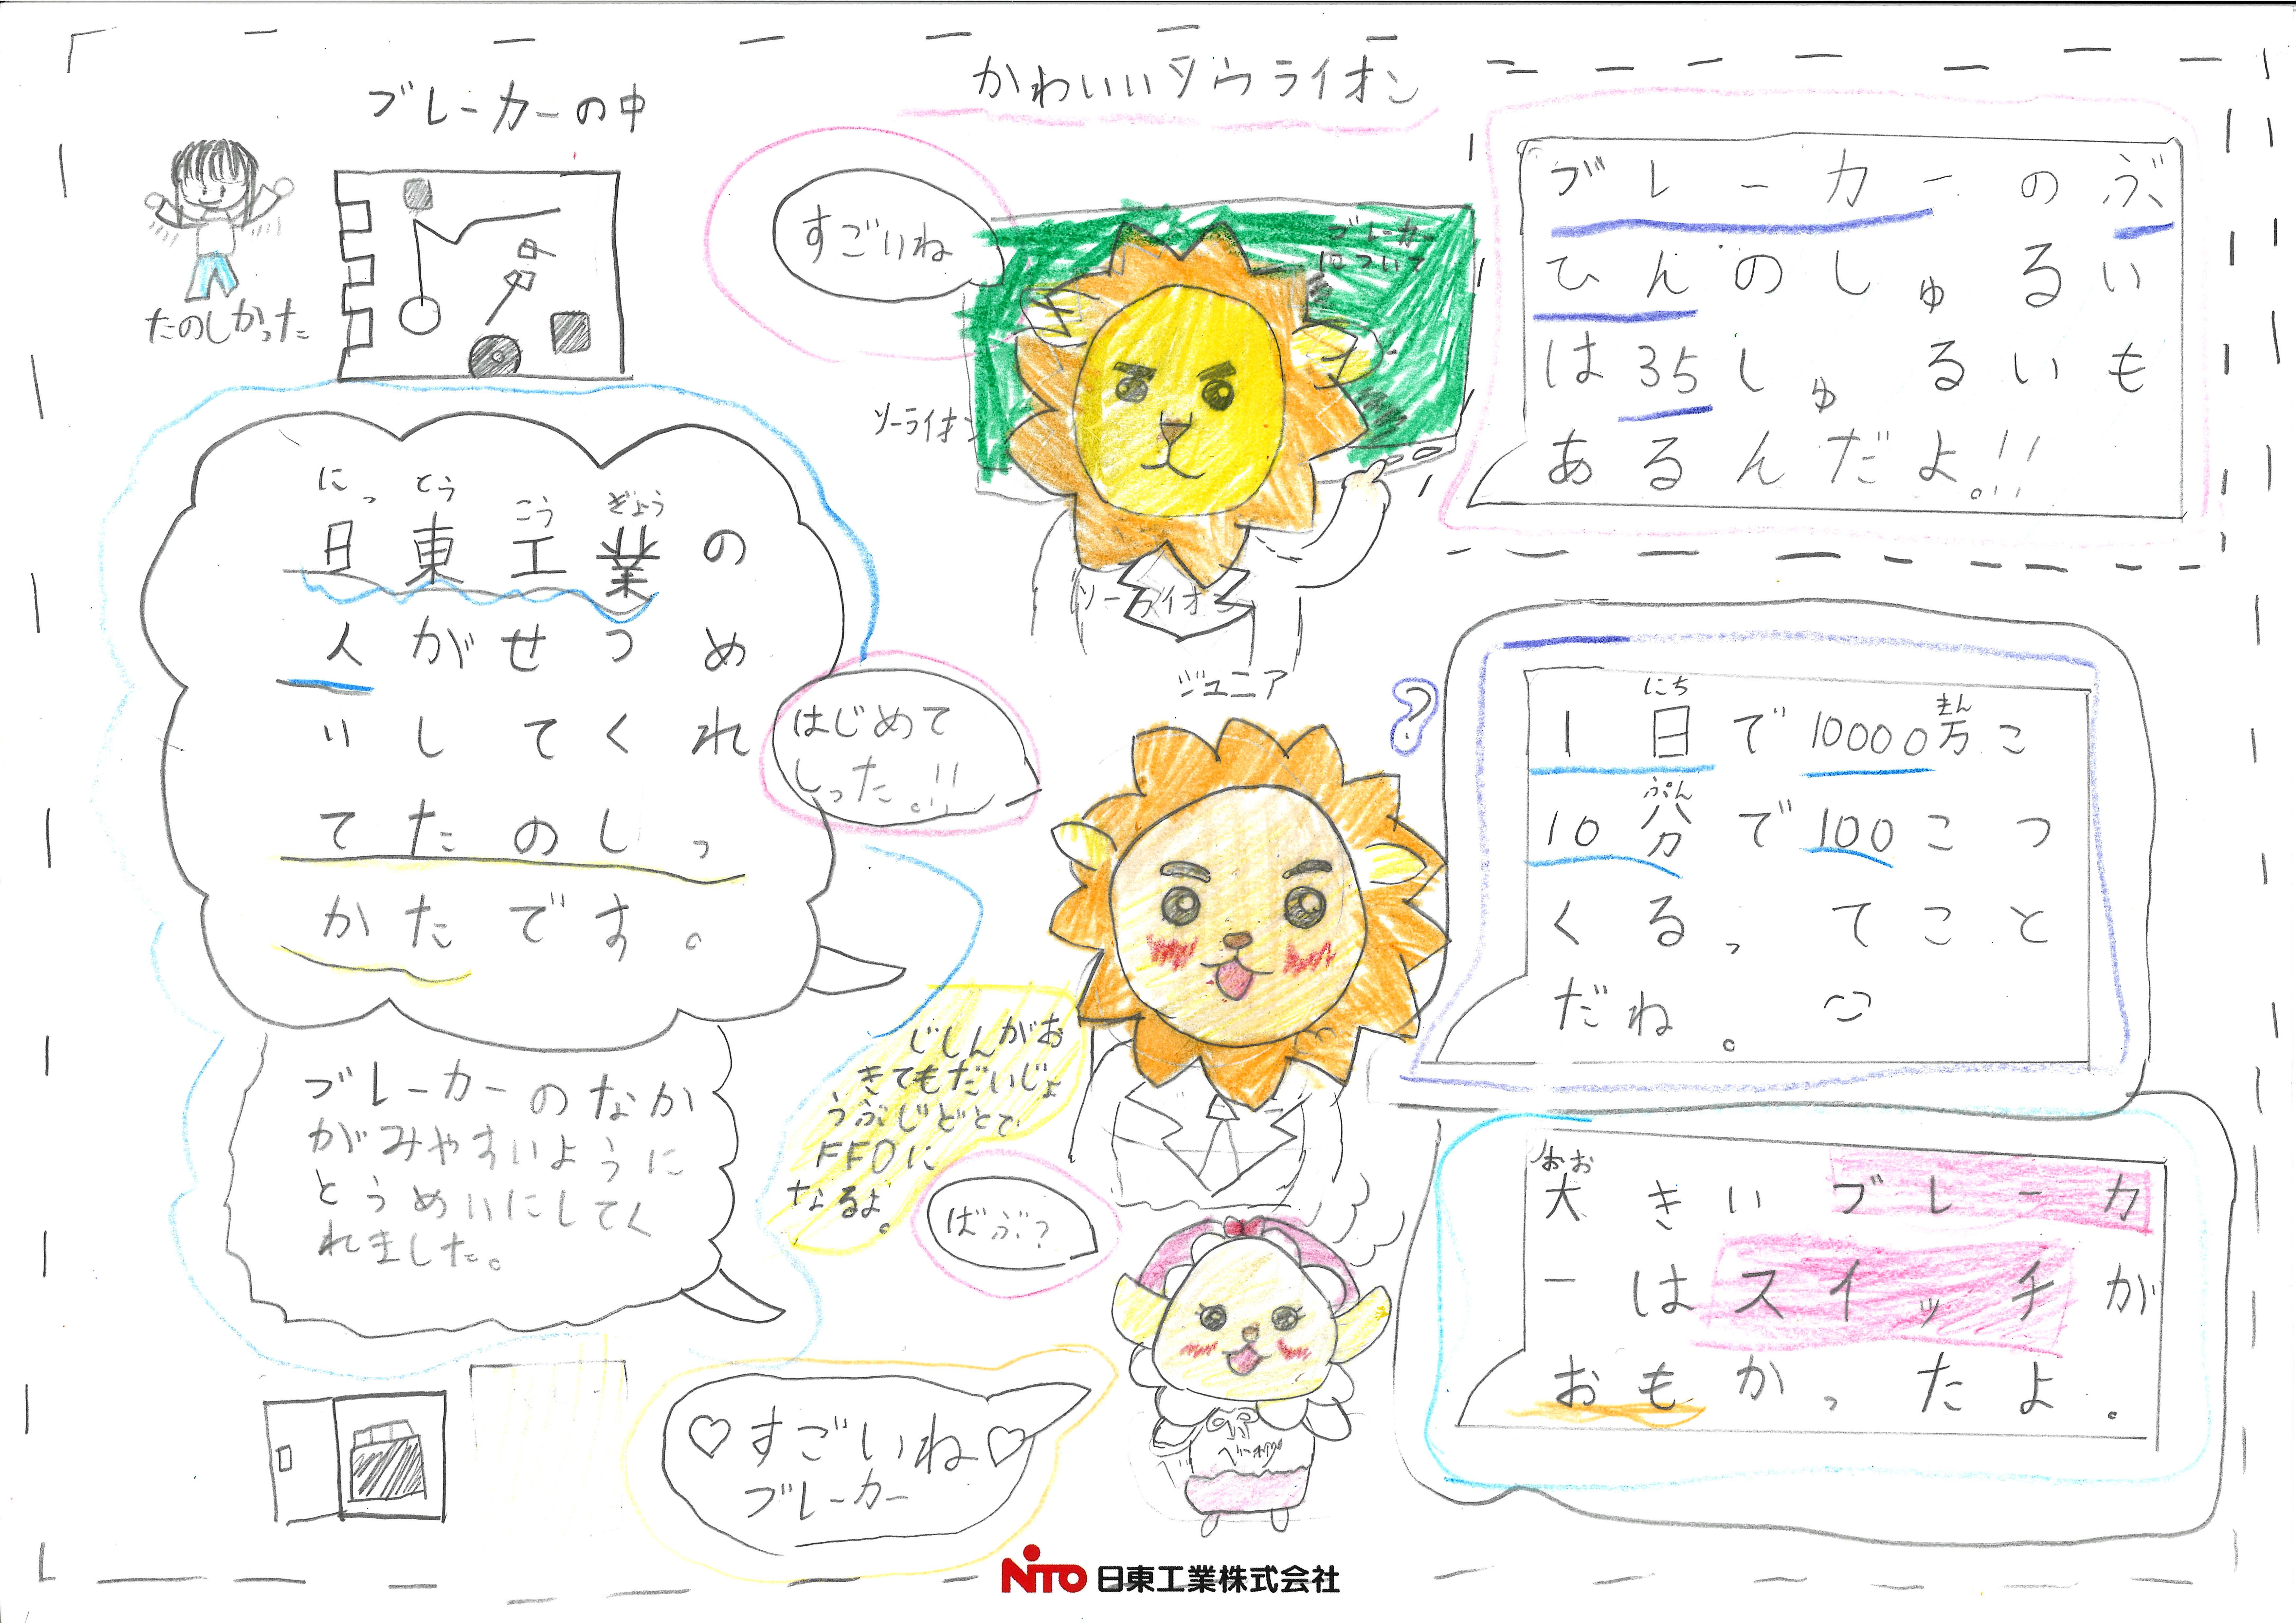 かわいいダウライオン
ブレーカーの中
たのしかった
すごいね
ブレーカー
について
ソーライオン
ソーライオン
ブレーカーのぶ
ひんのしゅるい
は35しゅるいも
あるんだよ。!!
にっとうこうぎょう
日東工業の
人がせつめ
いしてくれ
てたのしっ
かたです。
はじめて
しった。!!
ジュニア
?
にち
まん
1日で10000万こ
ぷん
10分で100こつ
くるってこと
だね。
ブレーカーのなか
がみやすいように
とうめいにしてく
れました。
じしんがお
きてもだいじょ
うぶじどとで
FFOに
なるよ。
ばぶ?
おお
大きいブレーカ
ーはスイッチが
おもかったよ。
♡すごいね♡
ブレーカー
NiTO 日東工業株式会社